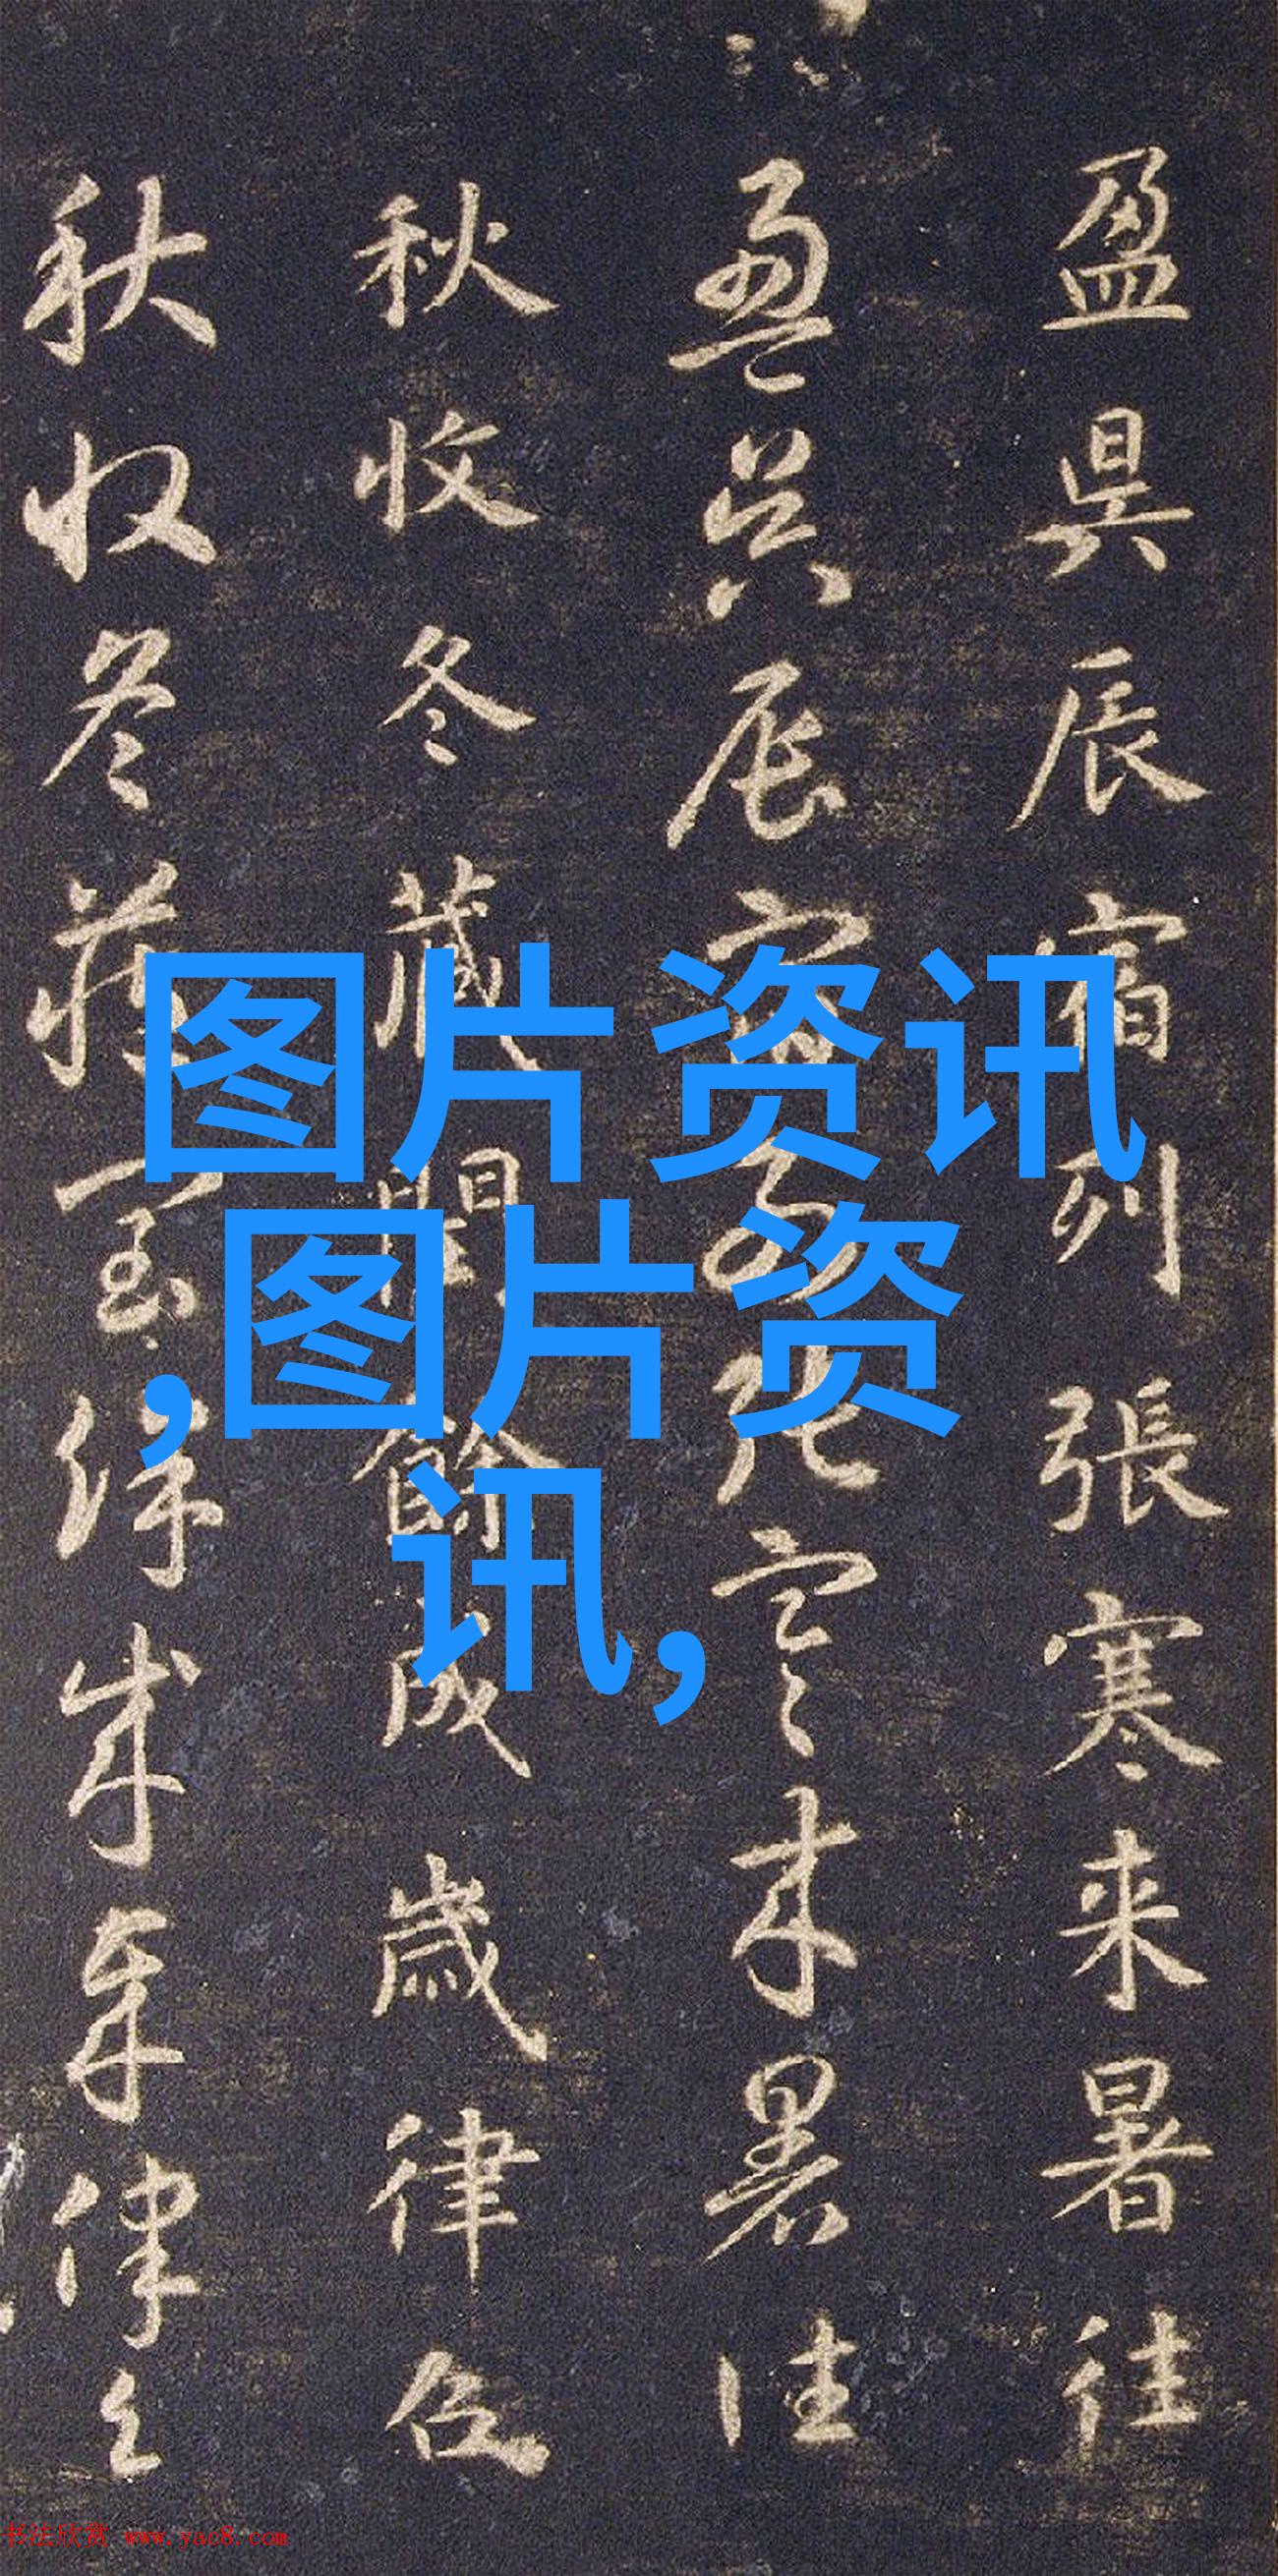 盈昃辰宿列張寒来暑往
盈昃辰宿列張寒来暑往
秋收冬藏閏餘成歲律召
秋收冬藏閏餘成歲律召
图片资讯
,图片资
讯,
书法欣赏 www.yac8.com